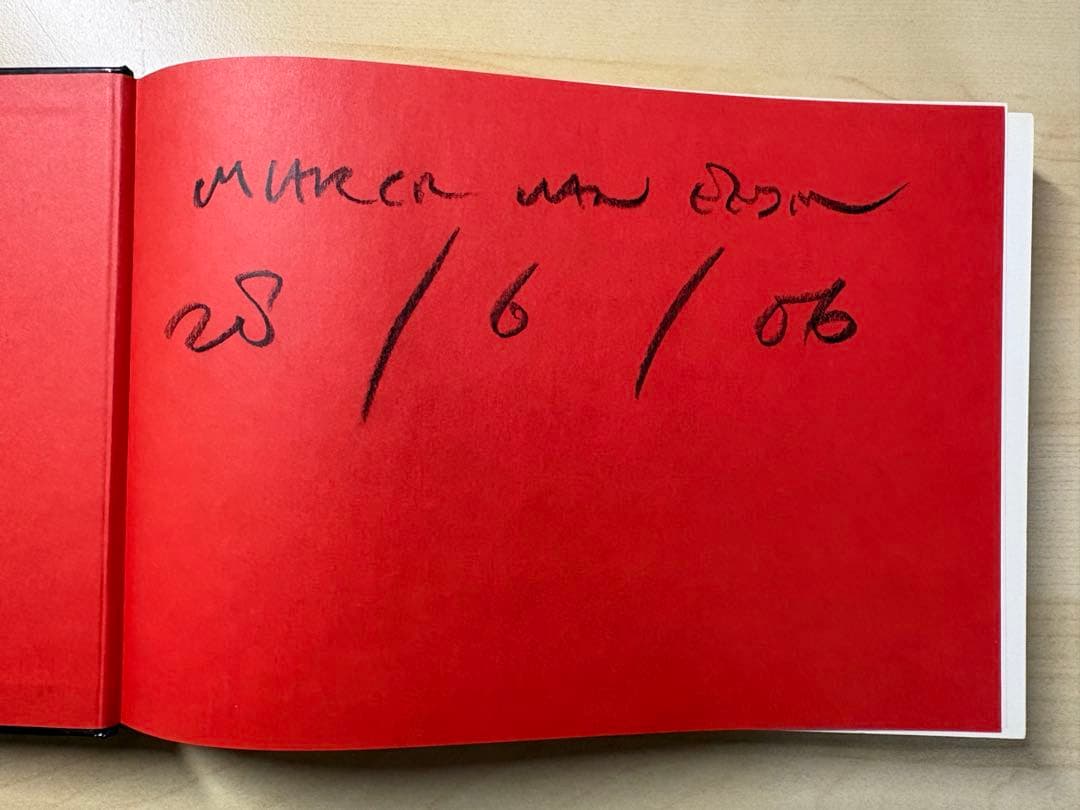 MARCEL VAN EEDEN
28 / 6 / 06